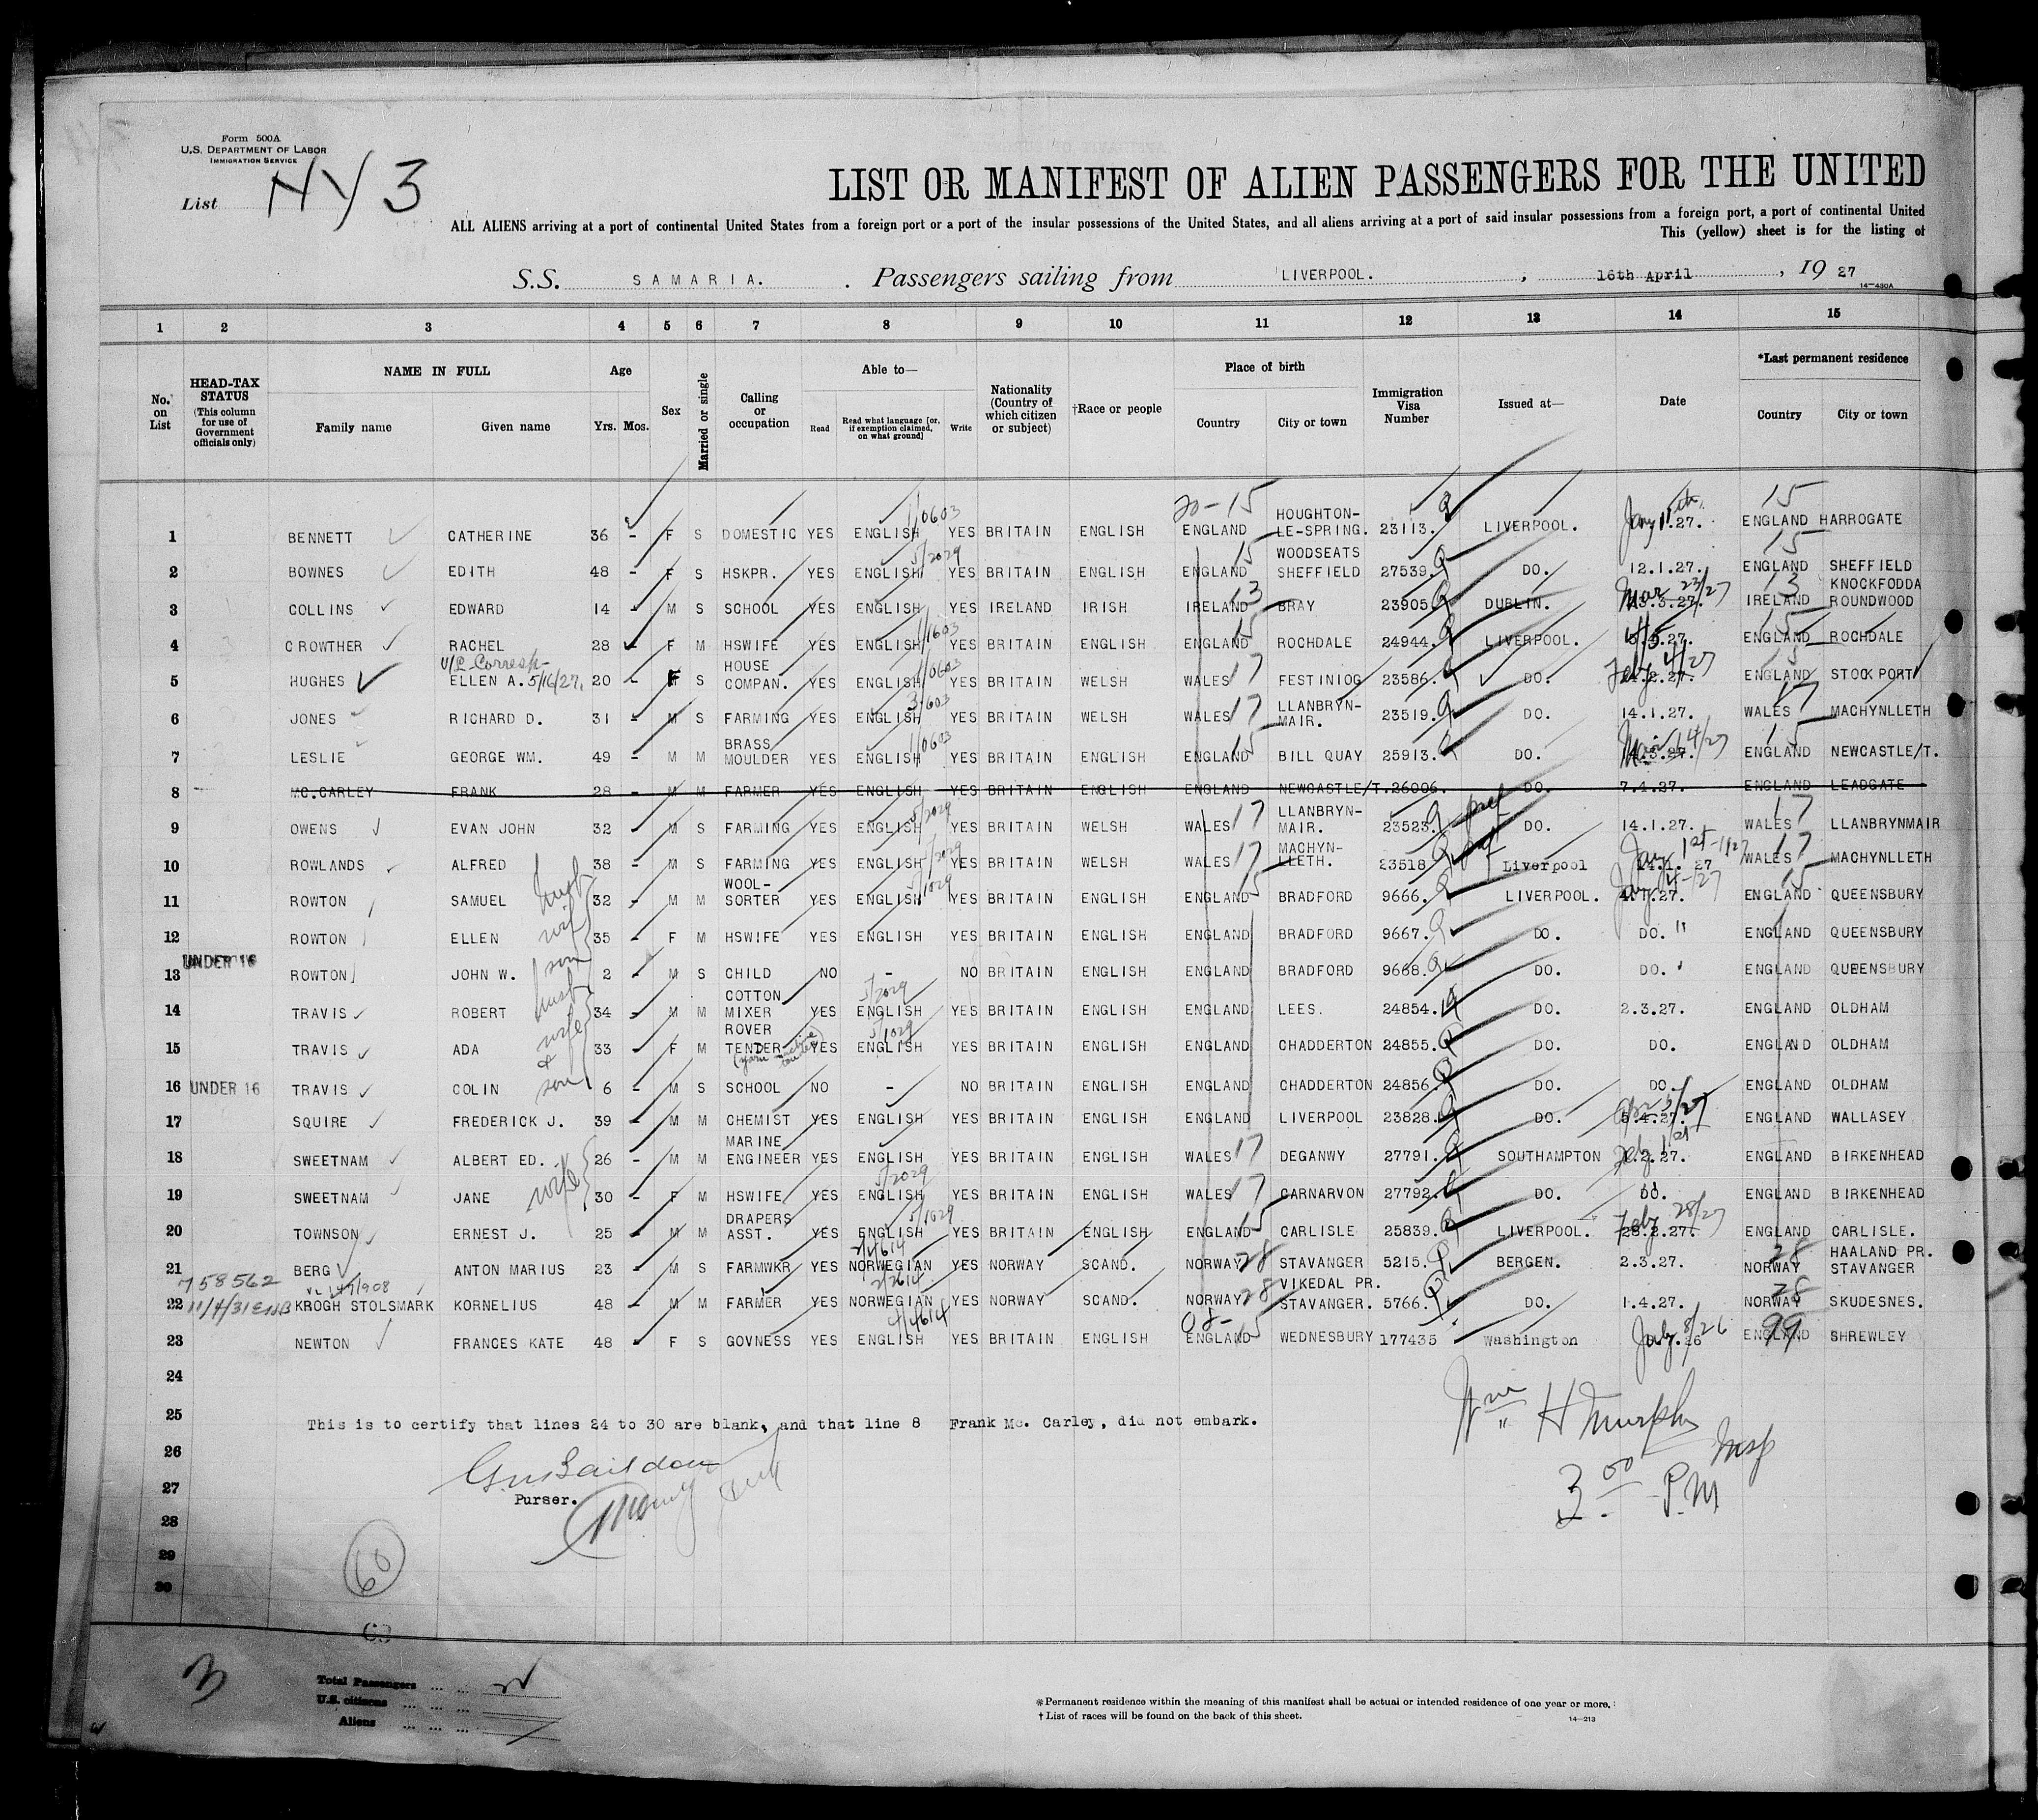 Form 500A
U.S. DEPARTMENT OF LABOR
IMMIGRATION SERVICE
List NY 3
LIST OR MANIFEST OF ALIEN PASSENGERS FOR THE UNITED
ALL ALIENS arriving at a port of continental United States from a foreign port or a port of the insular possessions of the United States, and all aliens arriving at a port of said insular possessions from a foreign port, a port of continental United
This (yellow) sheet is for the listing of
S.S. SAMARIA. Passengers sailing from LIVERPOOL. , 16th April , 19 27
14—430A
1 2 3 4 5 6 7 8 9 10 11 12 13 14 15
No. on List
HEAD-TAX STATUS (This column for use of Government officials only)
NAME IN FULL
Family name Given name
Age Yrs. Mos.
Sex
Married or single
Calling or occupation
Able to—
Read Read what language (or, if exemption claimed, on what ground) Write
Nationality (Country of which citizen or subject)
†Race or people
Place of birth
Country City or town
Immigration Visa Number
Issued at—
Date
*Last permanent residence
Country City or town
1 BENNETT CATHERINE 36 - F S DOMESTIC YES ENGLISH 1/0603 YES BRITAIN ENGLISH 20-15 ENGLAND HOUGHTON-LE-SPRING. 23113. LIVERPOOL. Jany 11th .27. 15 ENGLAND HARROGATE
2 BOWNES EDITH 48 - F S HSKPR. YES ENGLISH 5/2029 YES BRITAIN ENGLISH ENGLAND 15 WOODSEATS SHEFFIELD 27539. DO. 12.1.27. ENGLAND 15 SHEFFIELD
3 COLLINS EDWARD 14 - M S SCHOOL YES ENGLISH YES IRELAND IRISH IRELAND 13 BRAY 23905 DUBLIN. Mar 23/27 23.3.27. IRELAND 13 KNOCKFODDA ROUNDWOOD
4 CROWTHER RACHEL 28 - F M HSWIFE YES ENGLISH 1/1603 YES BRITAIN ENGLISH ENGLAND 15 ROCHDALE 24944. LIVERPOOL. .4.27. ENGLAND 15 ROCHDALE
V/L Corresp- 5/16/27.
5 HUGHES ELLEN A. 20 - F S HOUSE COMPAN. YES ENGLISH 1/0603 YES BRITAIN WELSH WALES 17 FESTINIOG 23586. DO. Feby 4/27 4.2.27. ENGLAND 15 STOCKPORT
6 JONES RICHARD D. 31 - M S FARMING YES ENGLISH 3/603 YES BRITAIN WELSH WALES 17 LLANBRYN-MAIR. 23519. DO. 14.1.27. WALES 17 MACHYNLLETH
7 LESLIE GEORGE WM. 49 - M M BRASS MOULDER YES ENGLISH 1/0603 YES BRITAIN ENGLISH ENGLAND 15 BILL QUAY 25913. DO. Mar 14/27 14.3.27. ENGLAND 15 NEWCASTLE/T.
8 MC.CARLEY FRANK 28 - M M FARMER YES ENGLISH YES BRITAIN ENGLISH ENGLAND NEWCASTLE/T. 26006. DO. 7.4.27. ENGLAND LEADGATE
9 OWENS EVAN JOHN 32 - M S FARMING YES ENGLISH 5/2029 YES BRITAIN WELSH WALES 17 LLANBRYN-MAIR. 23523. pref DO. 14.1.27. WALES 17 LLANBRYNMAIR
10 ROWLANDS ALFRED 38 - M S FARMING YES ENGLISH 5/2029 YES BRITAIN WELSH WALES 17 MACHYN-LLETH. 23518 pref Liverpool 14.1. 27 WALES 17 MACHYNLLETH
11 ROWTON SAMUEL husb 32 - M M WOOL-SORTER YES ENGLISH 5/1029 YES BRITAIN ENGLISH ENGLAND 15 BRADFORD 9666. LIVERPOOL. 4.1.27. ENGLAND 15 QUEENSBURY
12 ROWTON ELLEN wife 35 - F M HSWIFE YES ENGLISH YES BRITAIN ENGLISH ENGLAND BRADFORD 9667. DO. DO. " ENGLAND QUEENSBURY
13 UNDER 16 ROWTON JOHN W. son 2 - M S CHILD NO - NO BRITAIN ENGLISH ENGLAND BRADFORD 9668. DO. DO. ENGLAND QUEENSBURY
14 TRAVIS ROBERT husb 34 - M M COTTON MIXER YES ENGLISH 5/2029 YES BRITAIN ENGLISH ENGLAND LEES. 24854. DO. 2.3.27. ENGLAND OLDHAM
15 TRAVIS ADA wife & 33 - F M ROVER TENDER YES ENGLISH 5/1029 YES BRITAIN ENGLISH ENGLAND CHADDERTON 24855. DO. DO. ENGLAND OLDHAM
16 UNDER 16 TRAVIS COLIN son 6 - M S SCHOOL NO - NO BRITAIN ENGLISH ENGLAND CHADDERTON 24856. DO. DO. ENGLAND OLDHAM
17 SQUIRE FREDERICK J. 39 - M M CHEMIST YES ENGLISH YES BRITAIN ENGLISH ENGLAND LIVERPOOL 23828. DO. .4.27. ENGLAND WALLASEY
18 SWEETNAM ALBERT ED. 26 - M M MARINE ENGINEER YES ENGLISH YES BRITAIN ENGLISH WALES 17 DEGANWY 27791. SOUTHAMPTON 1.2.27. ENGLAND BIRKENHEAD
19 SWEETNAM JANE wife 30 - F M HSWIFE YES ENGLISH 5/2029 YES BRITAIN ENGLISH WALES 17 CARNARVON 27792. DO. DO. ENGLAND BIRKENHEAD
20 TOWNSON ERNEST J. 25 - M M DRAPERS ASST. YES ENGLISH 5/1029 YES BRITAIN ENGLISH ENGLAND 15 CARLISLE 25839. LIVERPOOL. Feby 28/27 28.2.27. ENGLAND CARLISLE.
21 BERG ANTON MARIUS 23 - M S FARMWKR YES NORWEGIAN 2/4614 YES NORWAY SCAND. NORWAY 28 STAVANGER 5215. BERGEN. 2.3.27. NORWAY 28 HAALAND PR. STAVANGER
758562
11/4/31
22 KROGH STOLSMARK KORNELIUS 48 - M M FARMER YES NORWEGIAN 2/2614 YES NORWAY SCAND. NORWAY 28 VIKEDAL PR. STAVANGER. 5766. DO. 1.4.27. NORWAY 28 SKUDESNES.
23 NEWTON FRANCES KATE 48 - F S GOVNESS YES ENGLISH 4/4614 YES BRITAIN ENGLISH 08- ENGLAND 15 WEDNESBURY 177435 Washington July 8/26 ENGLAND 99 SHREWLEY
24
25 This is to certify that lines 24 to 30 are blank, and that line 8 Frank Mc. Carley, did not embark.
Wm H Murphy Insp
3.00 P.M
26
27 Purser.
28
29
30
60
3
Total Passengers ... ...
U.S. citizens ... ... ...
Aliens ... ... ...
*Permanent residence within the meaning of this manifest shall be actual or intended residence of one year or more.
† List of races will be found on the back of this sheet.
14—213